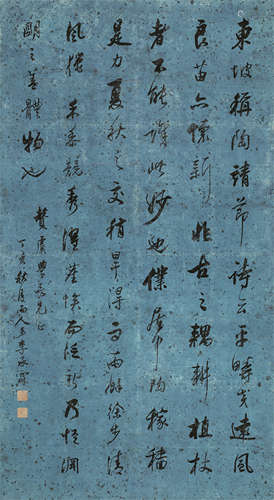 東坡稱陶靖節詩云平疇交遠風
良苗亦懷新非古之耦耕植杖
者不能識此妙也僕居中陶稼穡
是力夏秋之交稍旱得雨雨餘徐步清
風獵禾黍競秀濯塵埃而泛新乃悟淵
明之善體物也
贊虞長先正
丁亥秋